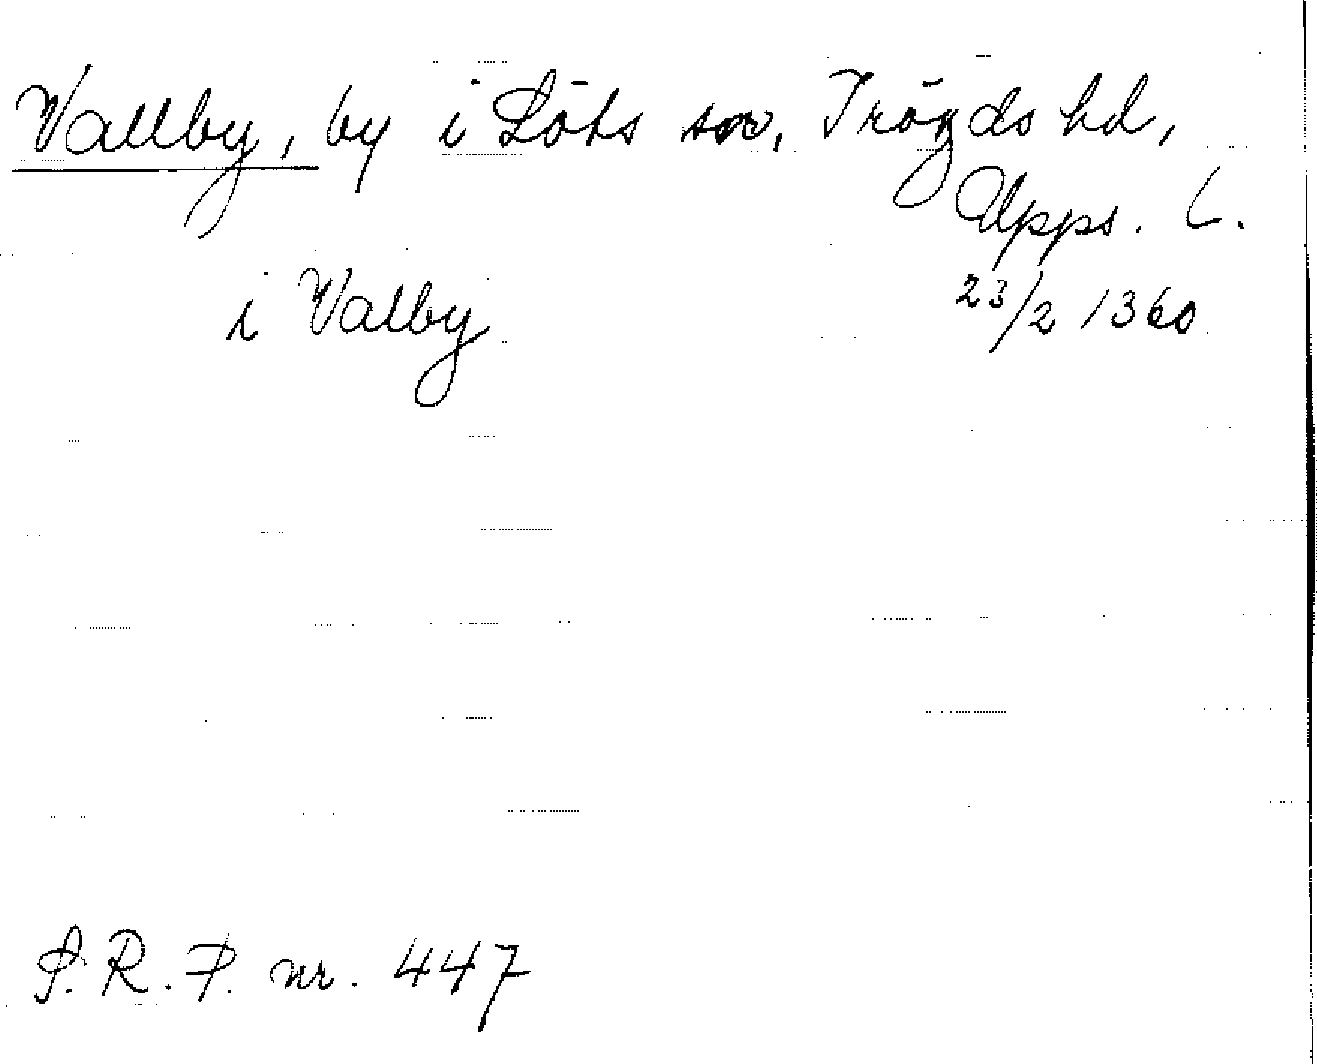 Vallby, by i Löts sn, Trögds hd,
Upps. l.
i Valby 23/2 1360
S. R. P. nr. 447